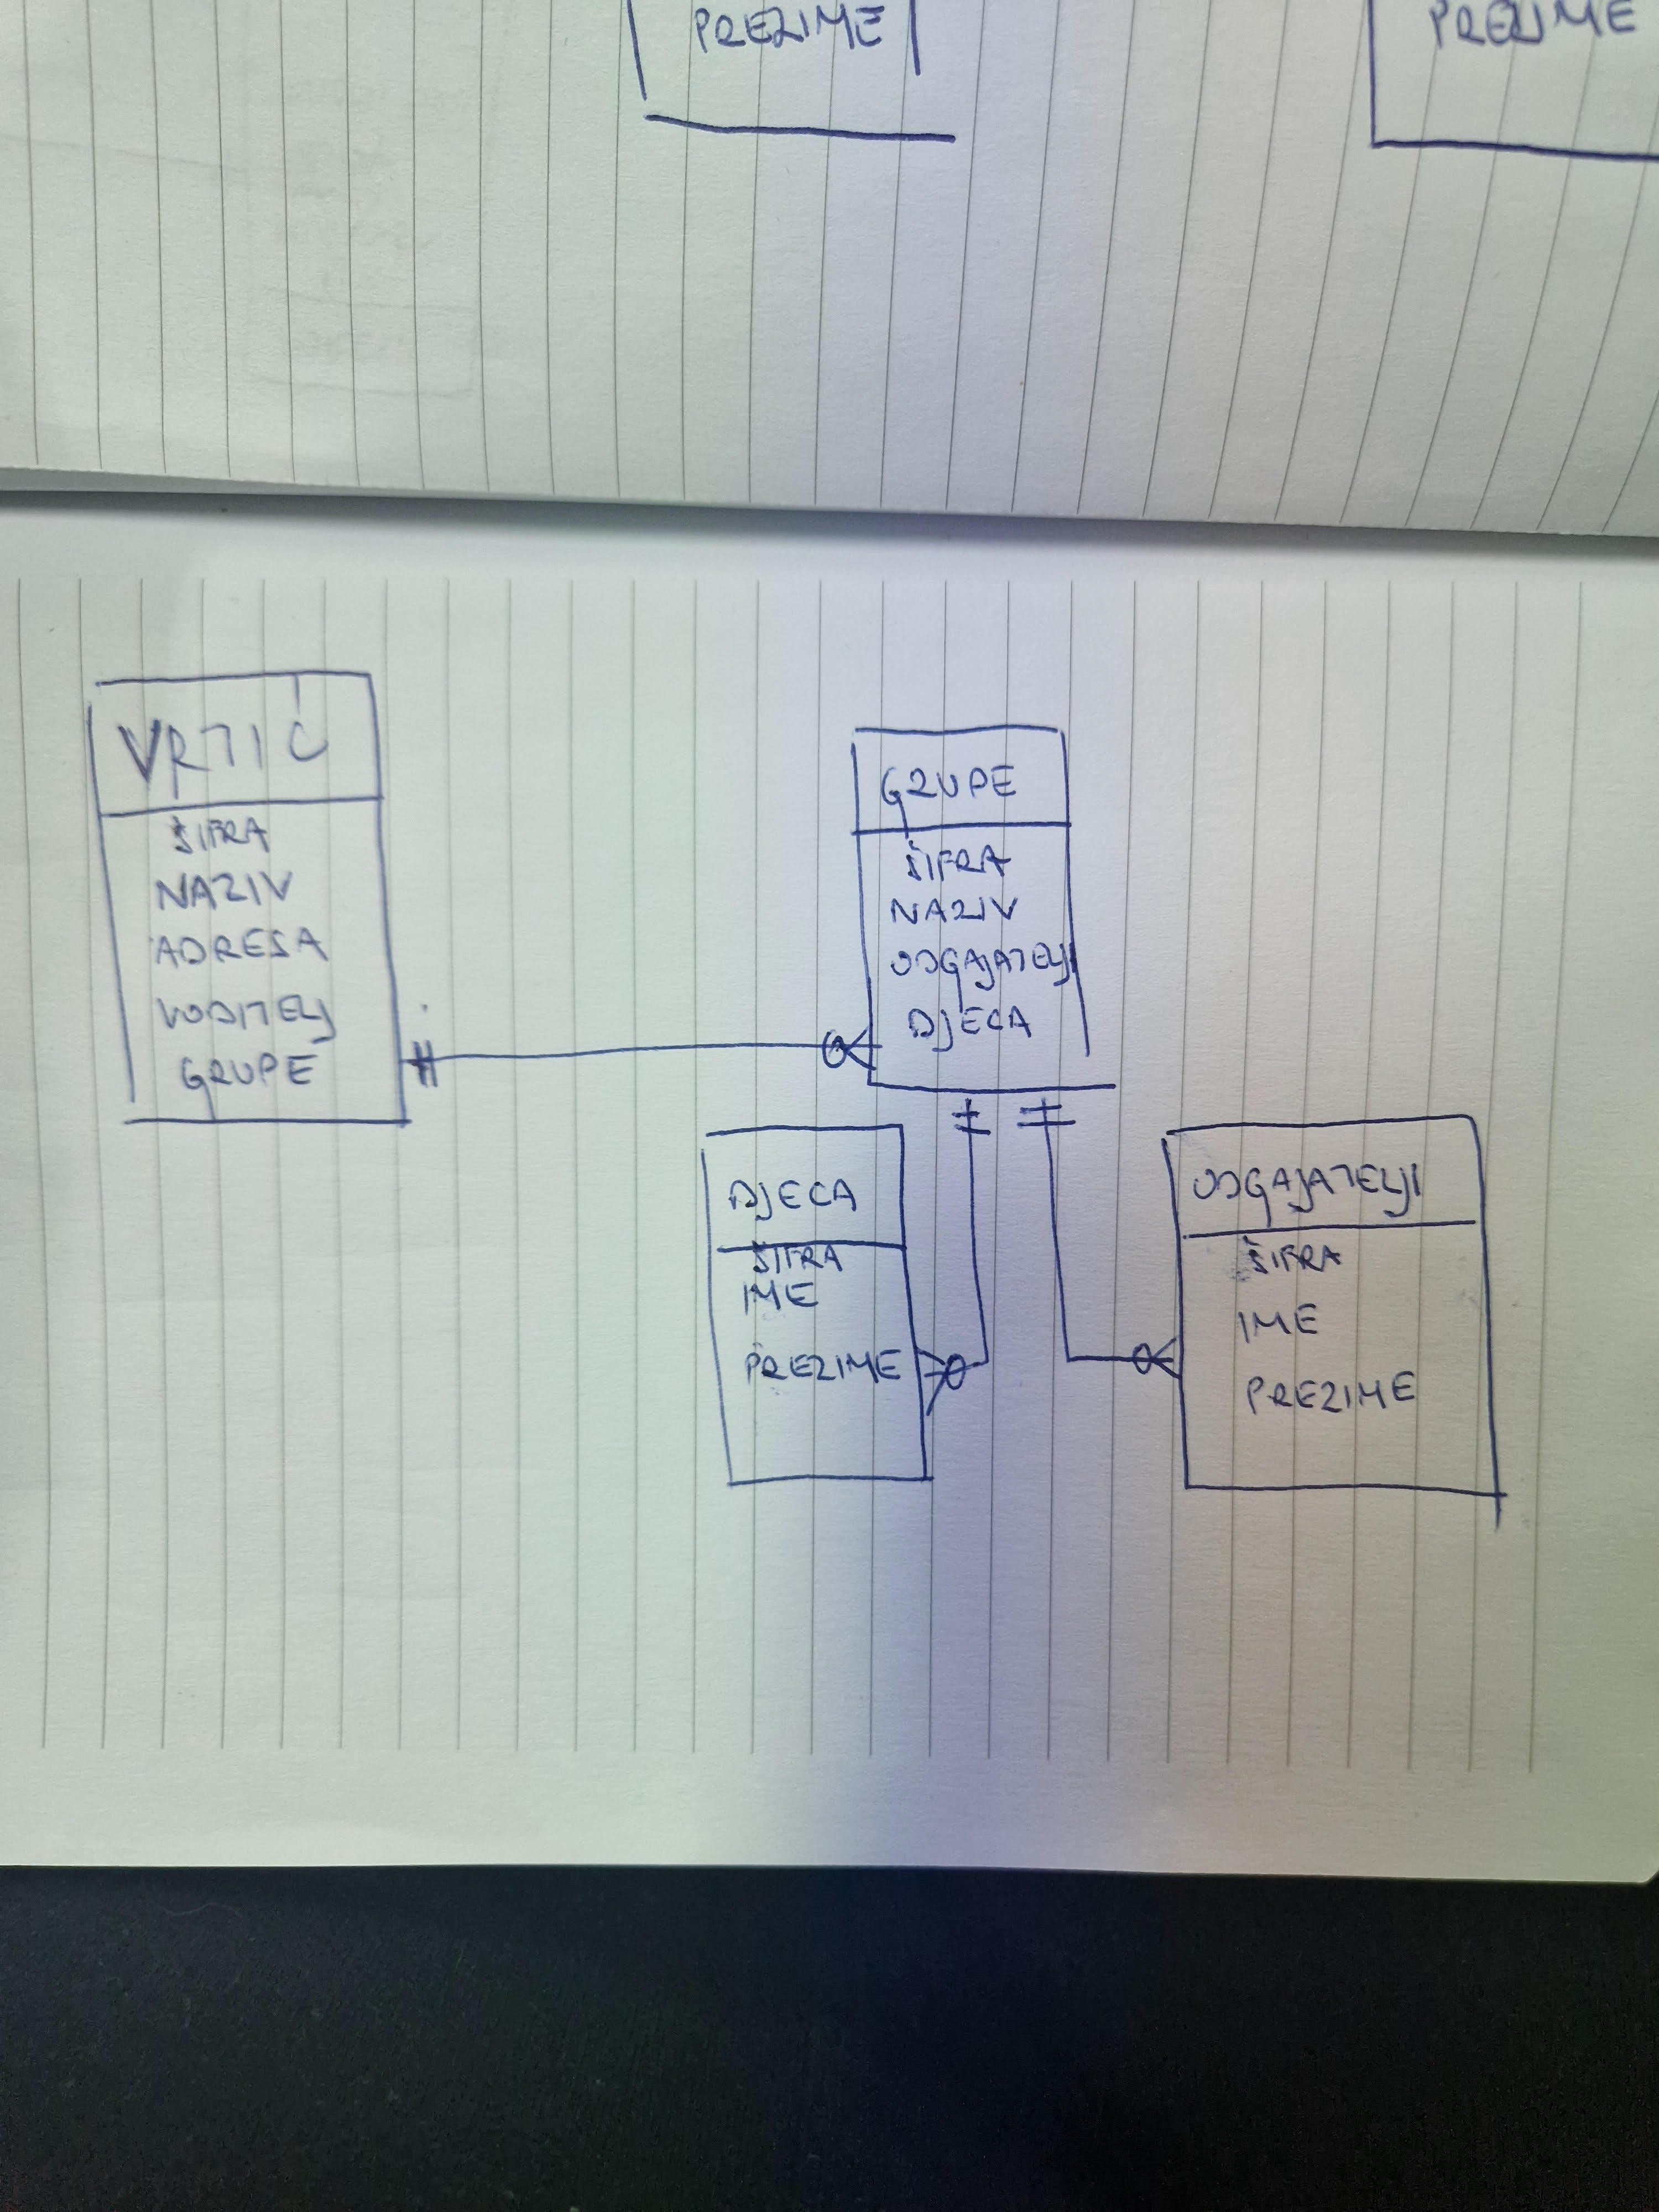 PREZIME
PREZIME
VRTIĆ
ŠIFRA
NAZIV
ADRESA
VODITELJ
GRUPE
GRUPE
ŠIFRA
NAZIV
ODGAJATELJI
DJECA
DJECA
ŠIFRA
IME
PREZIME
ODGAJATELJI
ŠIFRA
IME
PREZIME